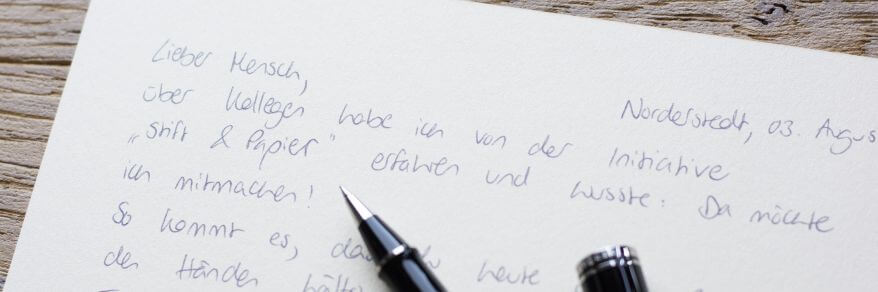 Norderstedt, 03. Augus
Lieber Mensch,
über Kollegen habe ich von der Initiative
„Stift & Papier" erfahren und wusste: Da möchte
ich mitmachen!
So kommt es, heute
den Händen